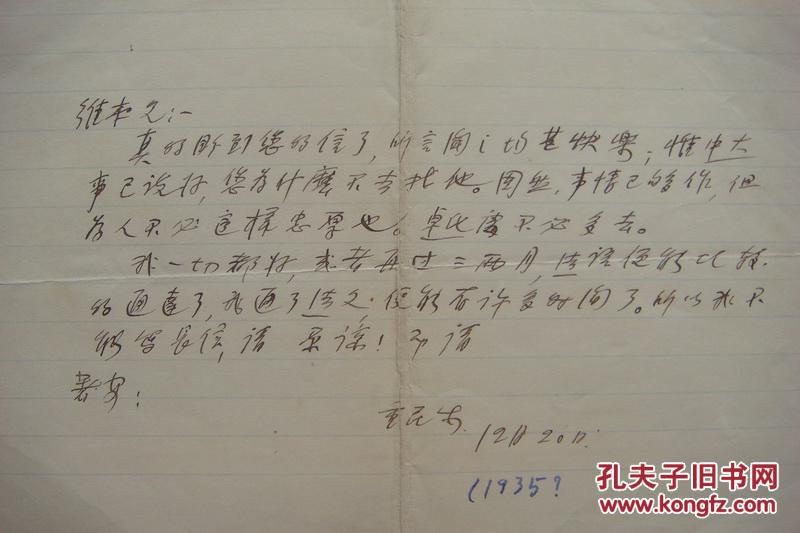 维本兄:—
真的听到您的信了,所言闻i切甚快乐;惟中大
事已说好,您为什么不去找他。固然,事情已够作,但
为人不必这样忠厚也。卓此处不必多去。
我一切都好,或者再过三两月,法语便能比较
的通达了,我通了法文,便能有许多时间了。所以我不
能写长信,请 原谅!即请
著安:
重民
12月20日.
(1935?
孔夫子旧书网
www.kongfz.com